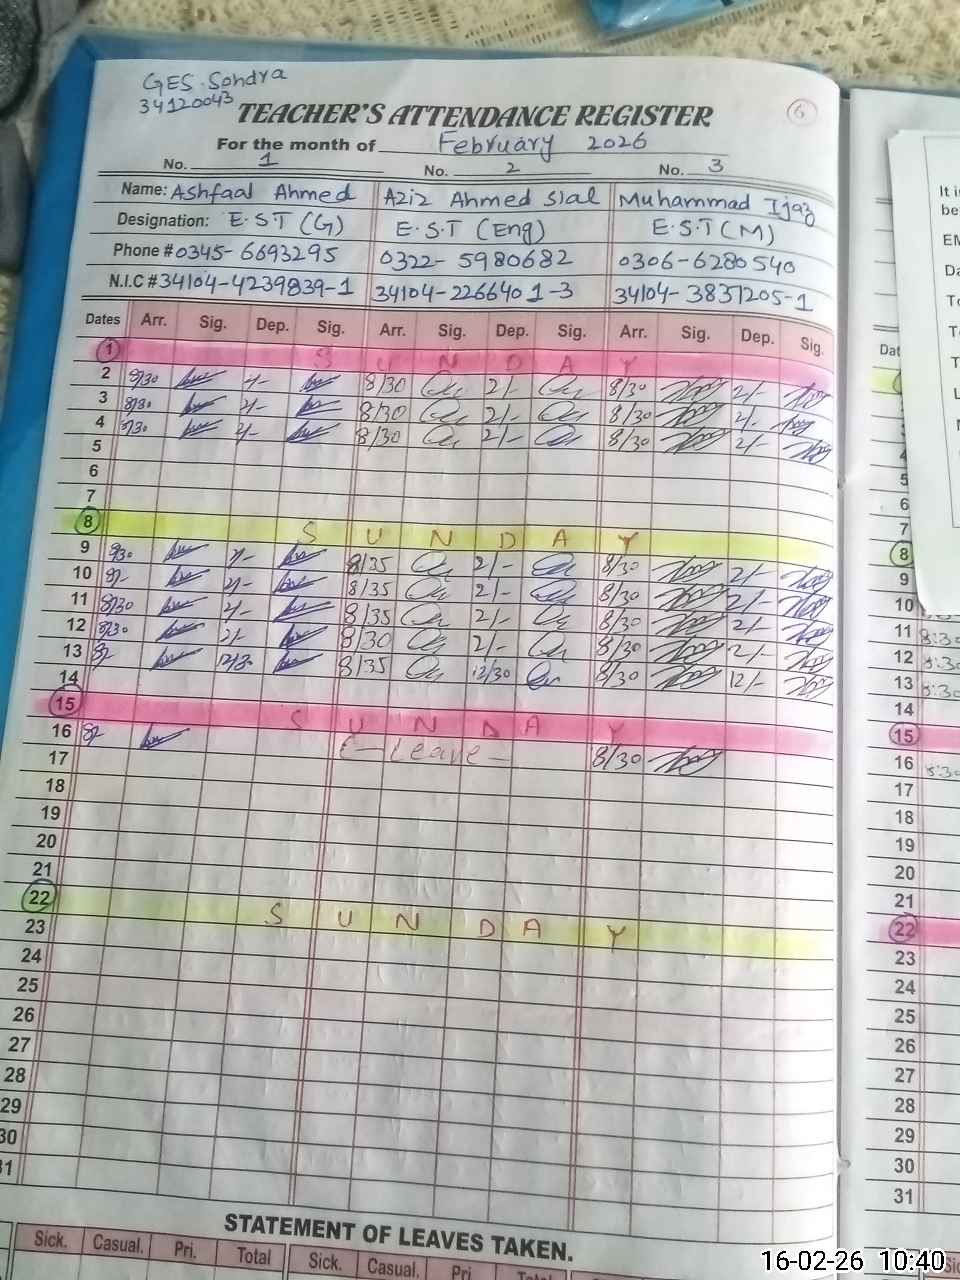 GES. Sohdra
34120043
6
TEACHER'S ATTENDANCE REGISTER
For the month of February 2026
No. 1 No. 2 No. 3
Name: Ashfaal Ahmed Aziz Ahmed Sial Muhammad Ijaz
Designation: E.S.T (G) E.S.T (Eng) E.S.T (M)
Phone # 0345-6693295 0322-5980682 0306-6280540
N.I.C # 34104-4239839-1 34104-2266401-3 34104-3831205-1
Dates Arr. Sig. Dep. Sig. Arr. Sig. Dep. Sig. Arr. Sig. Dep. Sig.
1 S U N D A Y
2 8/30 2/- 8/30 2/- 8/30 2/-
3 8/30 2/- 8/30 2/- 8/30 2/-
4 8/30 2/- 8/30 2/- 8/30 2/-
5
6
7
8 S U N D A Y
9 8/30 2/- 8/35 2/- 8/30 2/-
10 2/- 8/35 2/- 8/30 2/-
11 8/30 2/- 8/35 2/- 8/30 2/-
12 8/30 2/- 8/30 2/- 8/30 2/-
13 8/35 12/30 8/30 12/-
14
15 S U N D A Y
16 Leave 8/30
17
18
19
20
21
22 S U N D A Y
23
24
25
26
27
28
29
30
31
STATEMENT OF LEAVES TAKEN.
Sick. Casual. Pri. Total Sick. Casual. Pri. Total
Dat
4
5
6
7
8
9
10
11 8:30
12 8:30
13 8:30
14
15
16 8:30
17
18
19
20
21
22
23
24
25
26
27
28
29
30
31
16-02-26 10:40